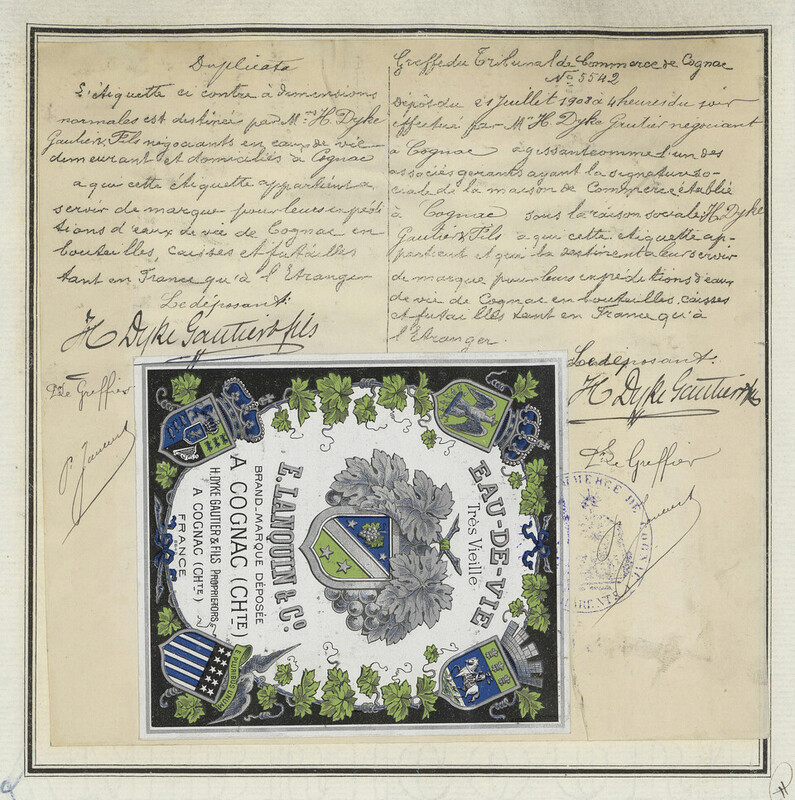 Duplicata
L'étiquette ci contre à dimensions
normales est destinée par Mrs H. Dyke
Gautier & Fils négociants en eaux de vie
demeurant et domiciliés à Cognac
a qui cette etiquette appartient a
servir de marque pour leurs expédi
tions d'eaux de vie de Cognac en
bouteilles, caisses et futailles
tant en France qu'à l'Etranger
Le déposant:
H Dyke Gautier & fils
Le Greffier
Greffe du Tribunal de Commerce de Cognac
No 5542
Dépôt du 21 Juillet 1908 a 4 heures du soir
effectué par Mr H. Dyke Gautier négociant
a Cognac agissant comme l'un des
associés gerants ayant la signature so-
ciale de la maison de Commerce établie
à Cognac sous la raison sociale H. Dyke
Gautier & Fils a qui cette etiquette ap-
partient et qui la destinent a leur servir
de marque pour leurs expéditions d'eaux
de vie de Cognac en bouteilles, caisses
et futailles tant en France qu'à
l'Etranger.
Le déposant.
H Dyke Gautier & fils
Le Greffier
COMMERCE DE COGNAC
EAU-DE-VIE
Très Vieille
E. LANQUIN & Co.
BRAND _ MARQUE DÉPOSÉE
A COGNAC (CHTE)
H. DYKE GAUTIER & FILS PROPRIETORS
A COGNAC (CHTE)
FRANCE
E PLURIBUS UNUM